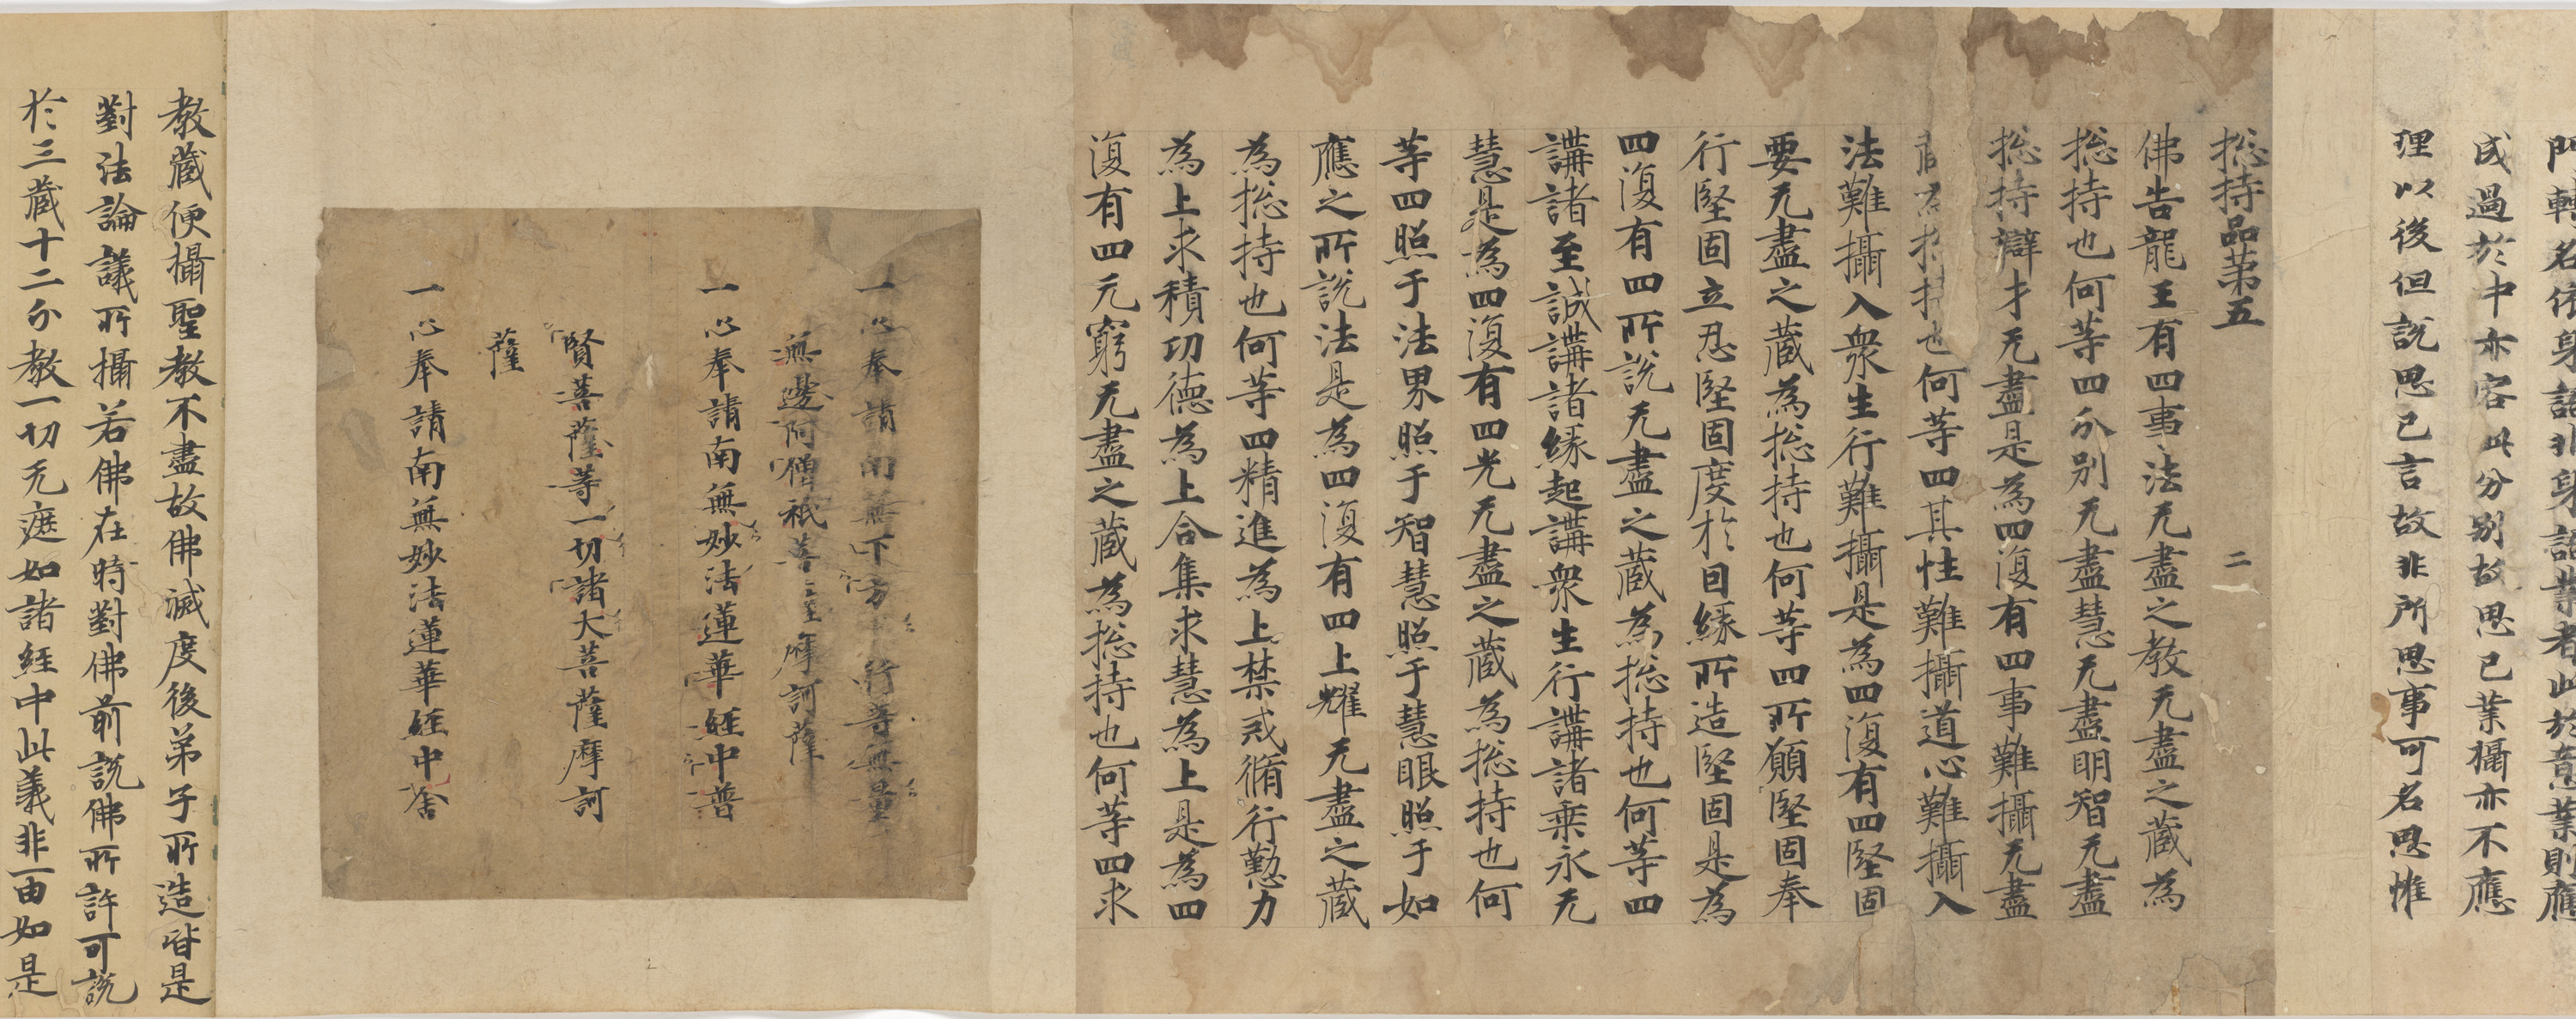 門轉名依身語非身語業者此於意業則應
成過於中亦容此分別故思已業攝亦不應
理以後但說思已言故非所思事可名思惟
二
㧾持品苐五
佛告龍王有四事法无盡之教无盡之藏為
㧾持也何等四分別无盡慧无盡明智无盡
㧾持辯才无盡是為四復有四事難攝无盡
也何等四其性難攝道心難攝入
法難攝入衆生行難攝是為四復有四堅固
要无盡之藏為㧾持也何等四所願堅固奉
行堅固立忍堅固度於因緣所造堅固是為
四復有四所說无盡之藏為㧾持也何等四
講諸至誠講諸緣起講衆生行講諸乗永无
慧是為四復有四光无盡之藏為㧾持也何
等四照于法界照于智慧照于慧眼照于如
應之所說法是為四復有四上耀无盡之藏
為㧾持也何等四精進為上禁戒脩行懃力
為上求積功德為上合集求慧為上是為四
復有四无窮无盡之藏為㧾持也何等四求
一心奉請南無下方行等無量
無邊阿僧祇菩摩訶薩
一心奉請南無妙法蓮華經中普
賢菩薩等一切諸大菩薩摩訶
薩
一心奉請南無妙法蓮華經中舍
教藏便攝聖教不盡故佛滅度後弟子所造皆是
對法論議所攝若佛在時對佛前說佛所許可說
於三藏十二分教一切无遮如諸經中此義非一由如是